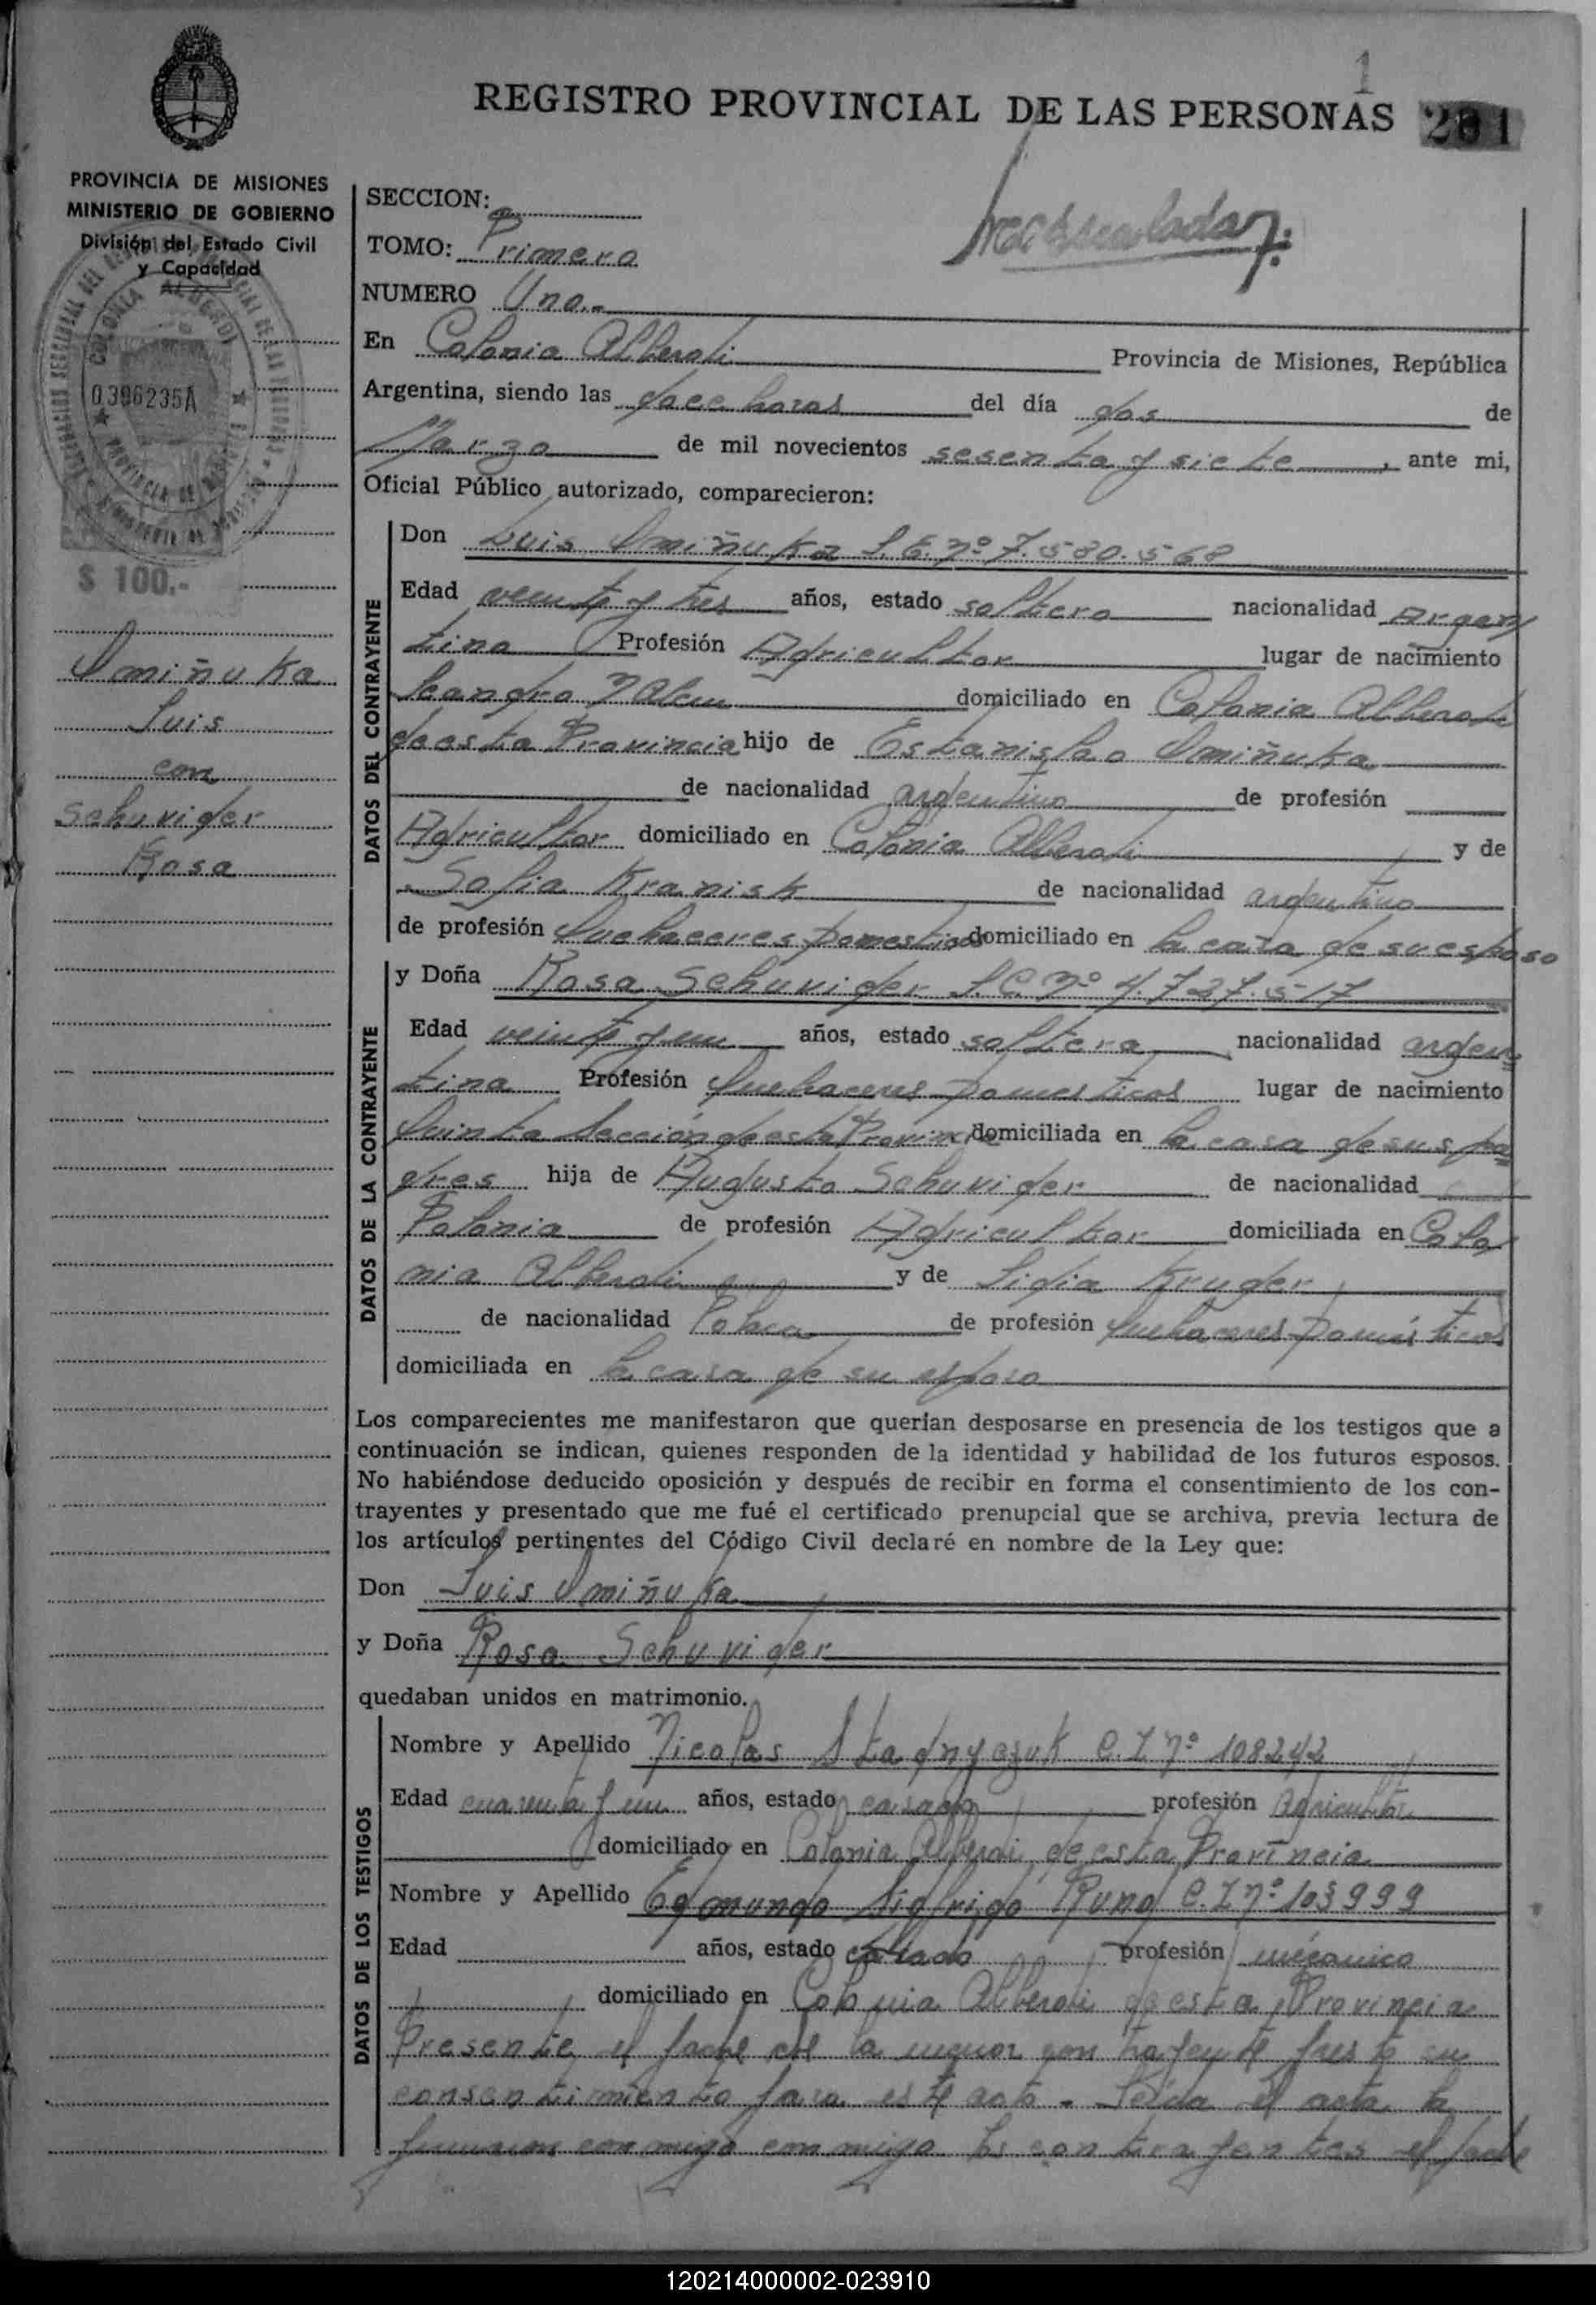 1
REGISTRO PROVINCIAL DE LAS PERSONAS 201
PROVINCIA DE MISIONES
MINISTERIO DE GOBIERNO
División del Estado Civil
y Capacidad
COLONIA ALBERDI
0396235A
$ 100.-
Luis
con
Schuvider
Rosa
SECCION:
TOMO: Primero
NUMERO Uno.-
En Colonia Alberdi Provincia de Misiones, República
Argentina, siendo las doce horas del día dos de
Marzo de mil novecientos sesenta y siete, ante mi,
Oficial Público autorizado, comparecieron:
DATOS DEL CONTRAYENTE
Don Luis Smiñuka L.E. Nº 7.580.568
Edad veinte y tres años, estado soltero nacionalidad Argen
tina Profesión Agricultor lugar de nacimiento
Leandro N Alem domiciliado en Colonia Alberdi
de esta Provincia hijo de Estanislao Smiñuka
de nacionalidad argentino de profesión
Agricultor domiciliado en Colonia Alberdi y de
Sofia Kranisk de nacionalidad argentino
de profesión Quehaceres Domesticos domiciliado en la casa de su esposo
DATOS DE LA CONTRAYENTE
y Doña Rosa Schuvider L.C. Nº 4.727.517
Edad veinte y un años, estado soltera nacionalidad argen
tina Profesión Quehaceres Domesticos lugar de nacimiento
Quinta Sección de esta Provincia domiciliada en la casa de sus pa
dres hija de Augusto Schuvider de nacionalidad
Polonia de profesión Agricultor domiciliada en Colo
nia Alberdi y de Lidia Kruder
de nacionalidad Polaca de profesión Quehaceres Domésticos
domiciliada en la casa de su esposo
Los comparecientes me manifestaron que querían desposarse en presencia de los testigos que a
continuación se indican, quienes responden de la identidad y habilidad de los futuros esposos.
No habiéndose deducido oposición y después de recibir en forma el consentimiento de los con-
trayentes y presentado que me fué el certificado prenupcial que se archiva, previa lectura de
los artículos pertinentes del Código Civil declaré en nombre de la Ley que:
Don Luis Smiñuka
y Doña Rosa Schuvider
quedaban unidos en matrimonio.
DATOS DE LOS TESTIGOS
Nombre y Apellido Nicolas Stadnyczuk C.I Nº 108242
Edad cuarenta y un años, estado casado profesión Agricultor
domiciliado en Colonia Alberdi de esta Provincia
Nombre y Apellido Edmundo Sigfrido Rund C.I Nº 103999
Edad años, estado casado profesión mécanico
domiciliado en Colonia Alberdi de esta Provincia
Presente el padre de la menor contrayente presto su
consentimiento para este acto. Leida el acta la
firmaron conmigo conmigo los contrayentes el padre
120214000002-023910